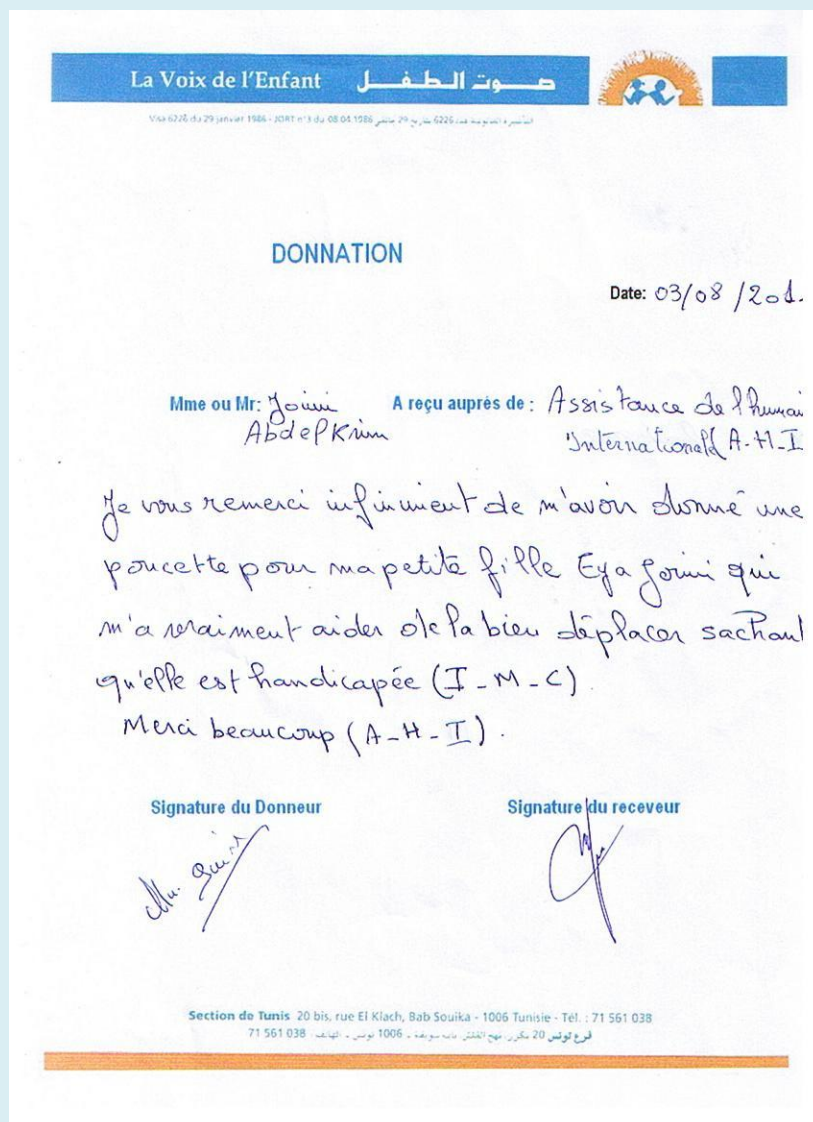 La Voix de l'Enfant صوت الطفل
Visa 6226 du 29 janvier 1986 - JORT n°3 du 08.04.1986
DONNATION
Date: 03/08/201.
Mme ou Mr: Joini A reçu auprès de : Assistance de l'humai
AbdelKrim International (A-H-I
Je vous remerci infiniment de m'avoir donné une
poucette pour ma petite fille Eya Joini qui
m'a vraiment aider de la bien déplacer sachant
qu'elle est handicapée (I-M-C)
Merci beaucoup (A-H-I).
Signature du Donneur Signature du receveur
Section de Tunis 20 bis, rue El Klach, Bab Souika - 1006 Tunisie - Tél. : 71 561 038
فرع تونس 20 مكرر، نهج القلش باب سويقة - 1006 تونس - الهاتف 71 561 038